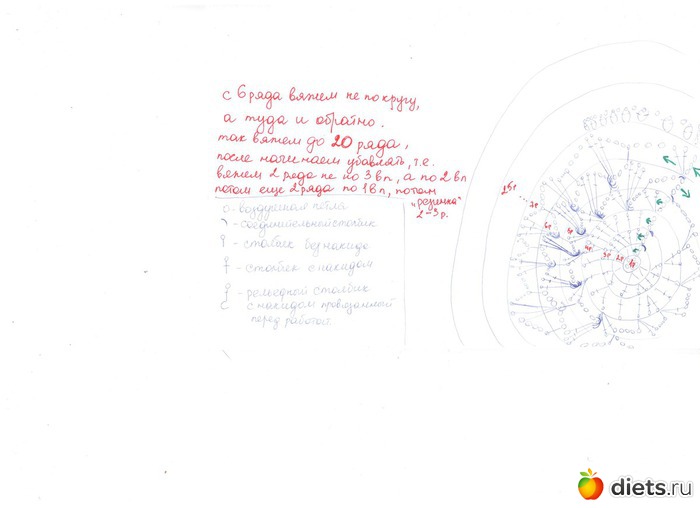 с 6 ряда вяжем не по кругу,
а туда и обратно.
так вяжем до 20 ряда,
после начинаем убавлять, т.е.
вяжем 2 ряда не по 3 вп, а по 2 вп
потом еще 2 ряда по 1 вп, потом
"резинка"
2-3 р.
о - воздушная петля
- соединительный столбик
- столбик без накида
- столбик с накидом
- рельефный столбик
с накидом провязанный
перед работой.
diets.ru